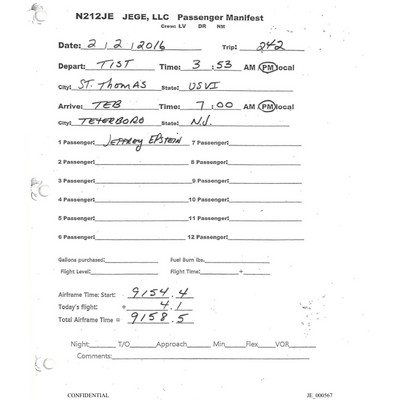 N212JE JEGE, LLC Passenger Manifest
Crew: LV DR NM
Date: 2 | 2 | 2016 Trip: 242
Depart: TIST Time: 3 : 53 AM PM local
City: ST. THOMAS State: USVI
Arrive: TEB Time: 7 : 00 AM PM local
City: TETERBORO State: N.J.
1 Passenger: JEFFREY EPSTEIN 7 Passenger:
2 Passenger: 8 Passenger:
3 Passenger: 9 Passenger:
4 Passenger: 10 Passenger:
5 Passenger: 11 Passenger:
6 Passenger: 12 Passenger:
Gallons purchased: Fuel Burn lbs.
Flight Level: Flight Time: +
Airframe Time: Start: 9154.4
Today's flight: + 4.1
Total Airframe Time = 9158.5
Night: T/O Approach Min Flex VOR
Comments:
CONFIDENTIAL JE_000567